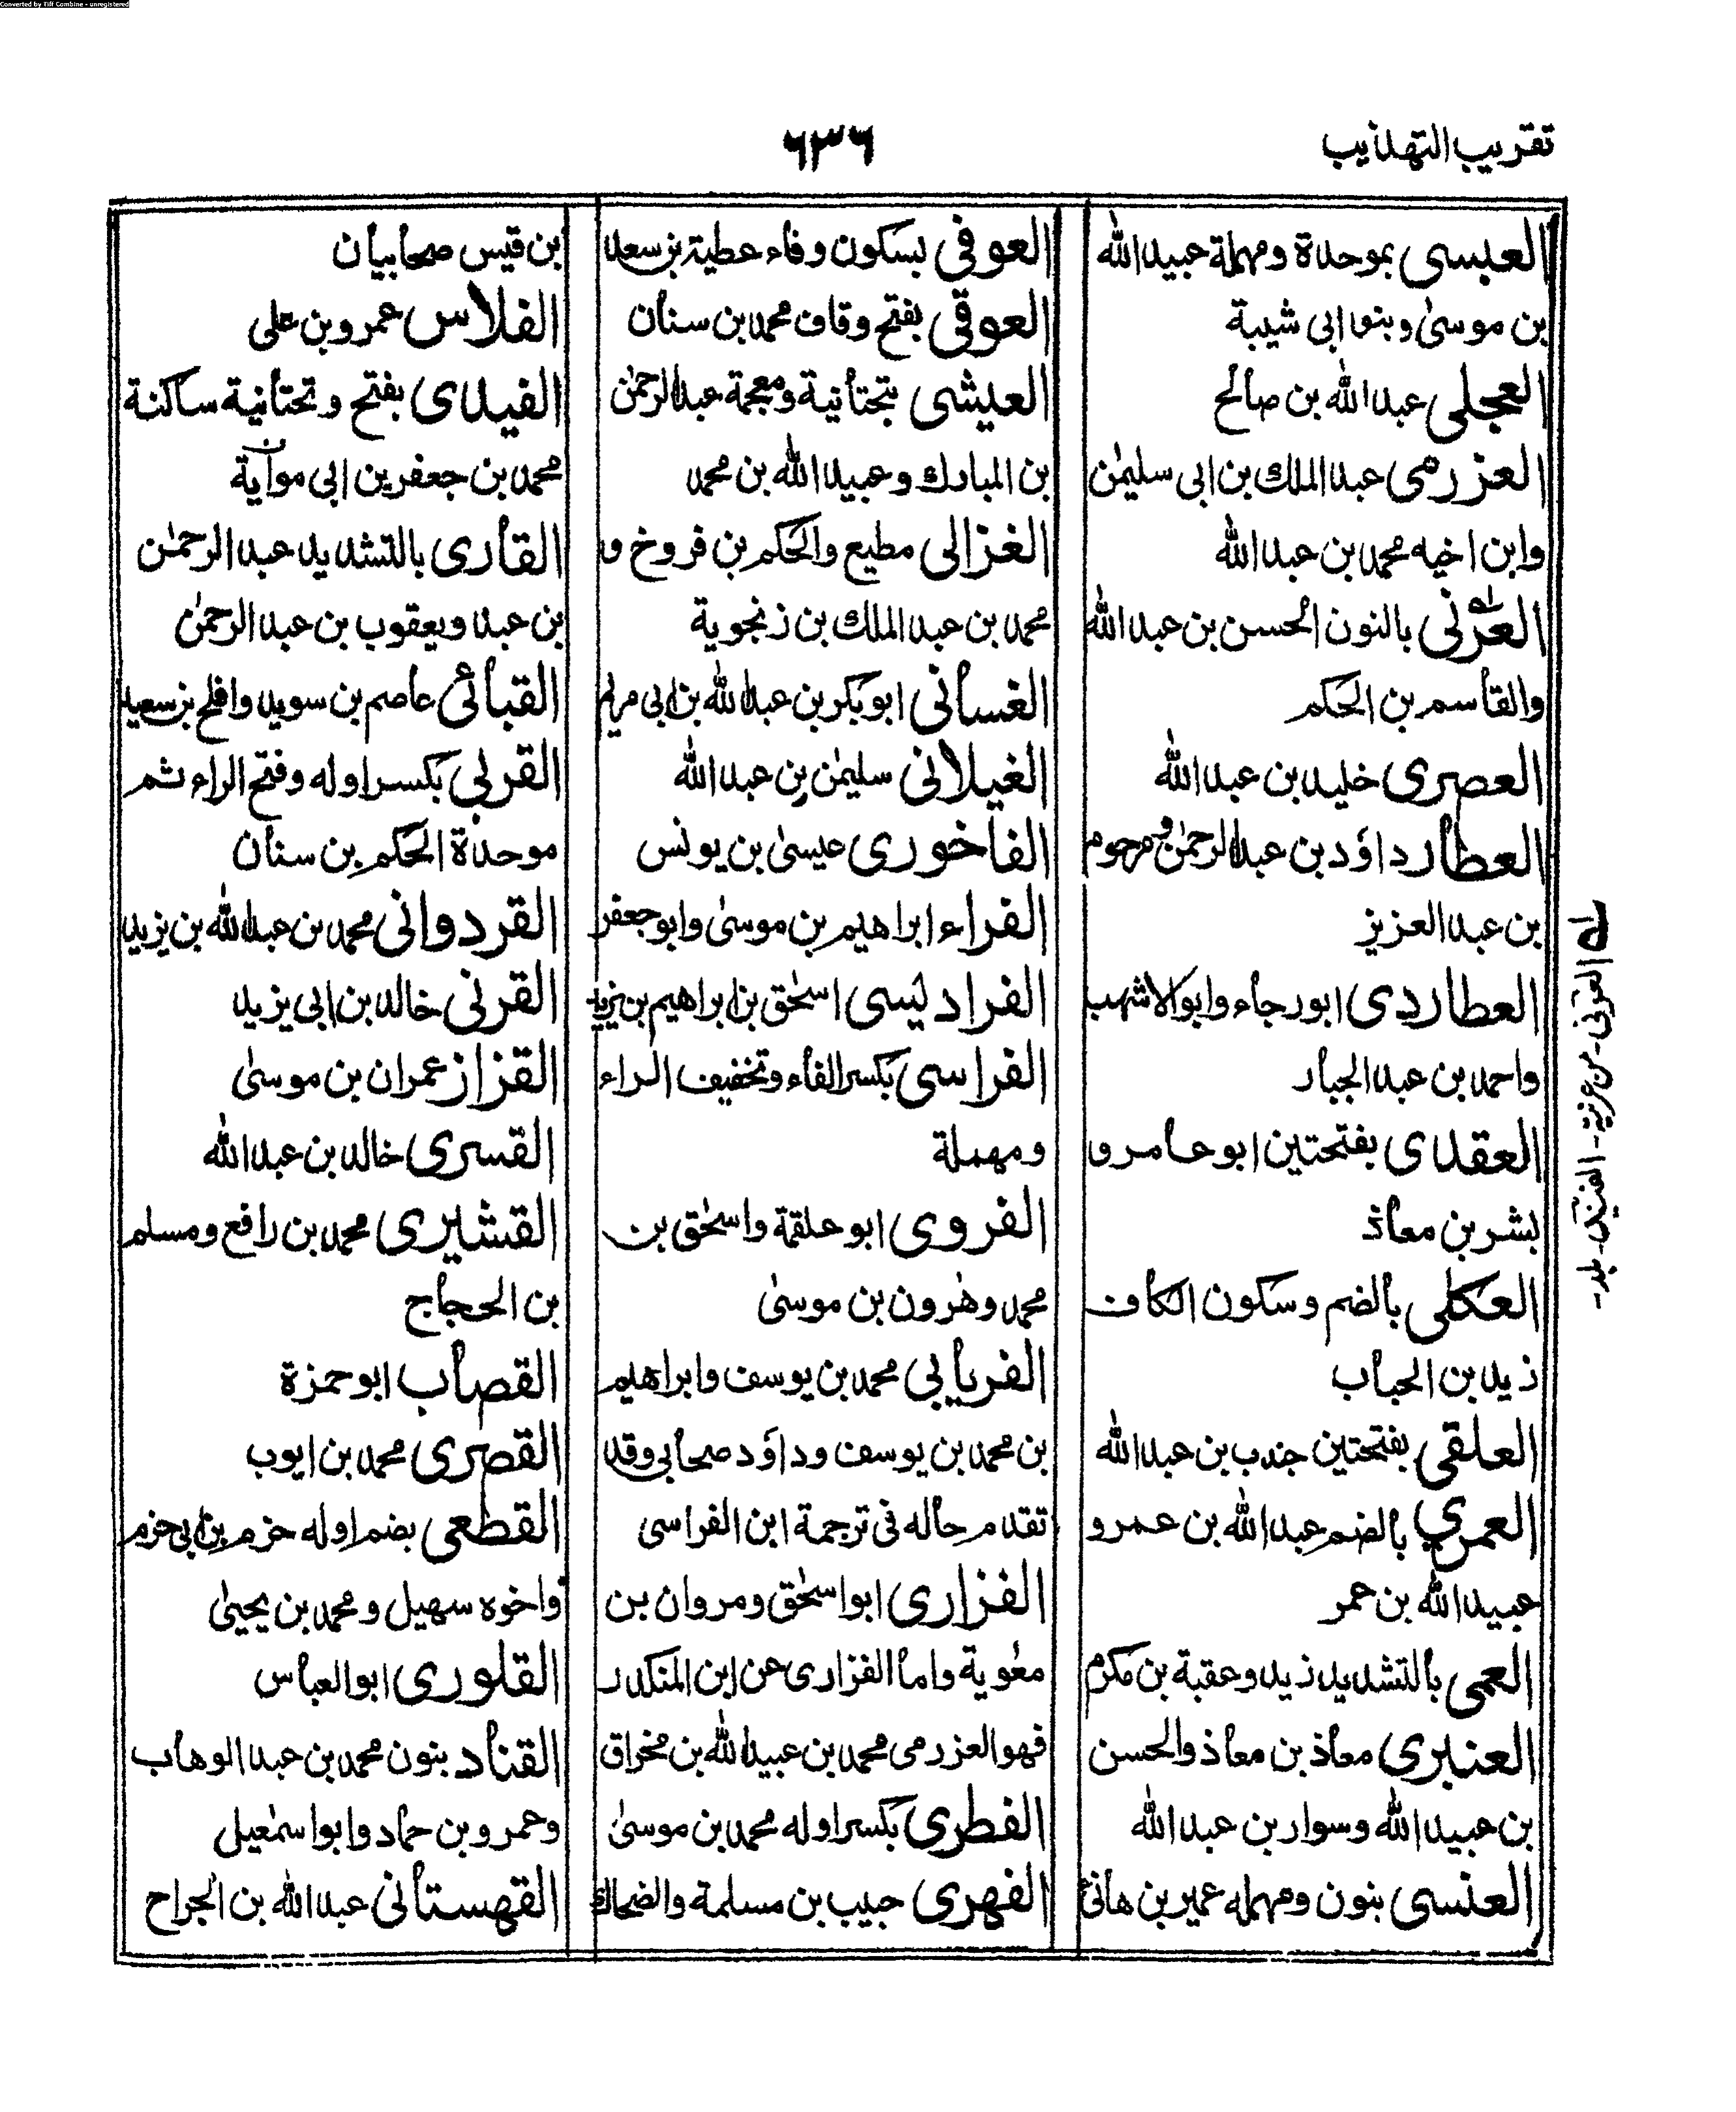 Converted by Tiff Combine - unregistered
تقريب التهذيب
٦٣٦
العبسى بموحدة ومهملة عبيد الله
بن موسىٰ وبنوا ابى شيبة
العجلى عبد الله بن صالح
العزرمى عبد الملك بن ابى سليمٰن
وابن اخيه محمد بن عبد الله
العرنى بالنون الحسن بن عبد الله
والقاسم بن الحكم
العصرى خليد بن عبد الله
العطار داؤد بن عبد الرحمٰن ومرحوم
بن عبد العزيز
العطاردى ابو رجاء وابو الاشهب
واحمد بن عبد الجبار
العقدى بفتحتين ابو عامر و
بشر بن معاذ
العكلى بالضم وسكون الكاف
زيد بن الحباب
العلقى بفتحتين جندب بن عبد الله
العمري بالضم عبد الله بن عمرو
عبيد الله بن عمر
العمى بالتشديد زيد وعقبة بن مكرم
العنبرى معاذ بن معاذ والحسن
بن عبيد الله وسوار بن عبد الله
العنسى بنون ومهمله عمير بن هانئ
العوفى بسكون وفاء عطية بن سعد
العوقى بفتح وقاف محمد بن سنان
العيشى بتحتانية ومعجمة عبد الرحمٰن
بن المبارك وعبيد الله بن محمد
الغزالى مطيع والحكم بن فروخ و
محمد بن عبد الملك بن زنجوية
الغسانى ابو بكر بن عبد الله بن ابى مريم
الغيلانى سليمٰن بن عبد الله
الفاخورى عيسىٰ بن يونس
الفراء ابراهيم بن موسىٰ وابو جعفر
الفراديسى اسحٰق بن ابراهيم بن يزيد
الفراسى بكسر الفاء وتخفيف الراء
ومهملة
الفروى ابو علقمة واسحٰق بن
محمد وهٰرون بن موسىٰ
الفريابى محمد بن يوسف وابراهيم
بن محمد بن يوسف وداؤد صحابى وقد
تقدم حاله فى ترجمة ابن الفراسى
الفزارى ابو اسحٰق ومروان بن
معٰوية واما الفزارى عن ابن المنكدر
فهو العزرمى محمد بن عبيد الله بن مخراق
الفطرى بكسر اوله محمد بن موسىٰ
الفهرى حبيب بن مسلمة والضحاك
بن قيس صحابيان
الفلاس عمرو بن على
الفيدى بفتح وتحتانية ساكنة
محمد بن جعفر بن ابى مواٰية
القارى بالتشديد عبد الرحمٰن
بن عبد ويعقوب بن عبد الرحمٰن
القبائى عاصم بن سويد وافلح بن سعيد
القربى بكسر اوله وفتح الراء ثم
موحدة الحكم بن سنان
القردوانى محمد بن عبد الله بن يزيد
القرنى خالد بن ابى يزيد
القزاز عمران بن موسىٰ
القسرى خالد بن عبد الله
القشيرى محمد بن رافع ومسلم
بن الحجاج
القصاب ابو حمزة
القصرى محمد بن ايوب
القطعى بضم اوله حزم بن ابى حزم
واخوه سهيل ومحمد بن يحيىٰ
القلورى ابو العباس
القناد بنون محمد بن عبد الوهاب
وعمرو بن حماد وابو اسمٰعيل
القهستانى عبد الله بن الجراح
له العرنى - من عرنية - الفينك - بلد -